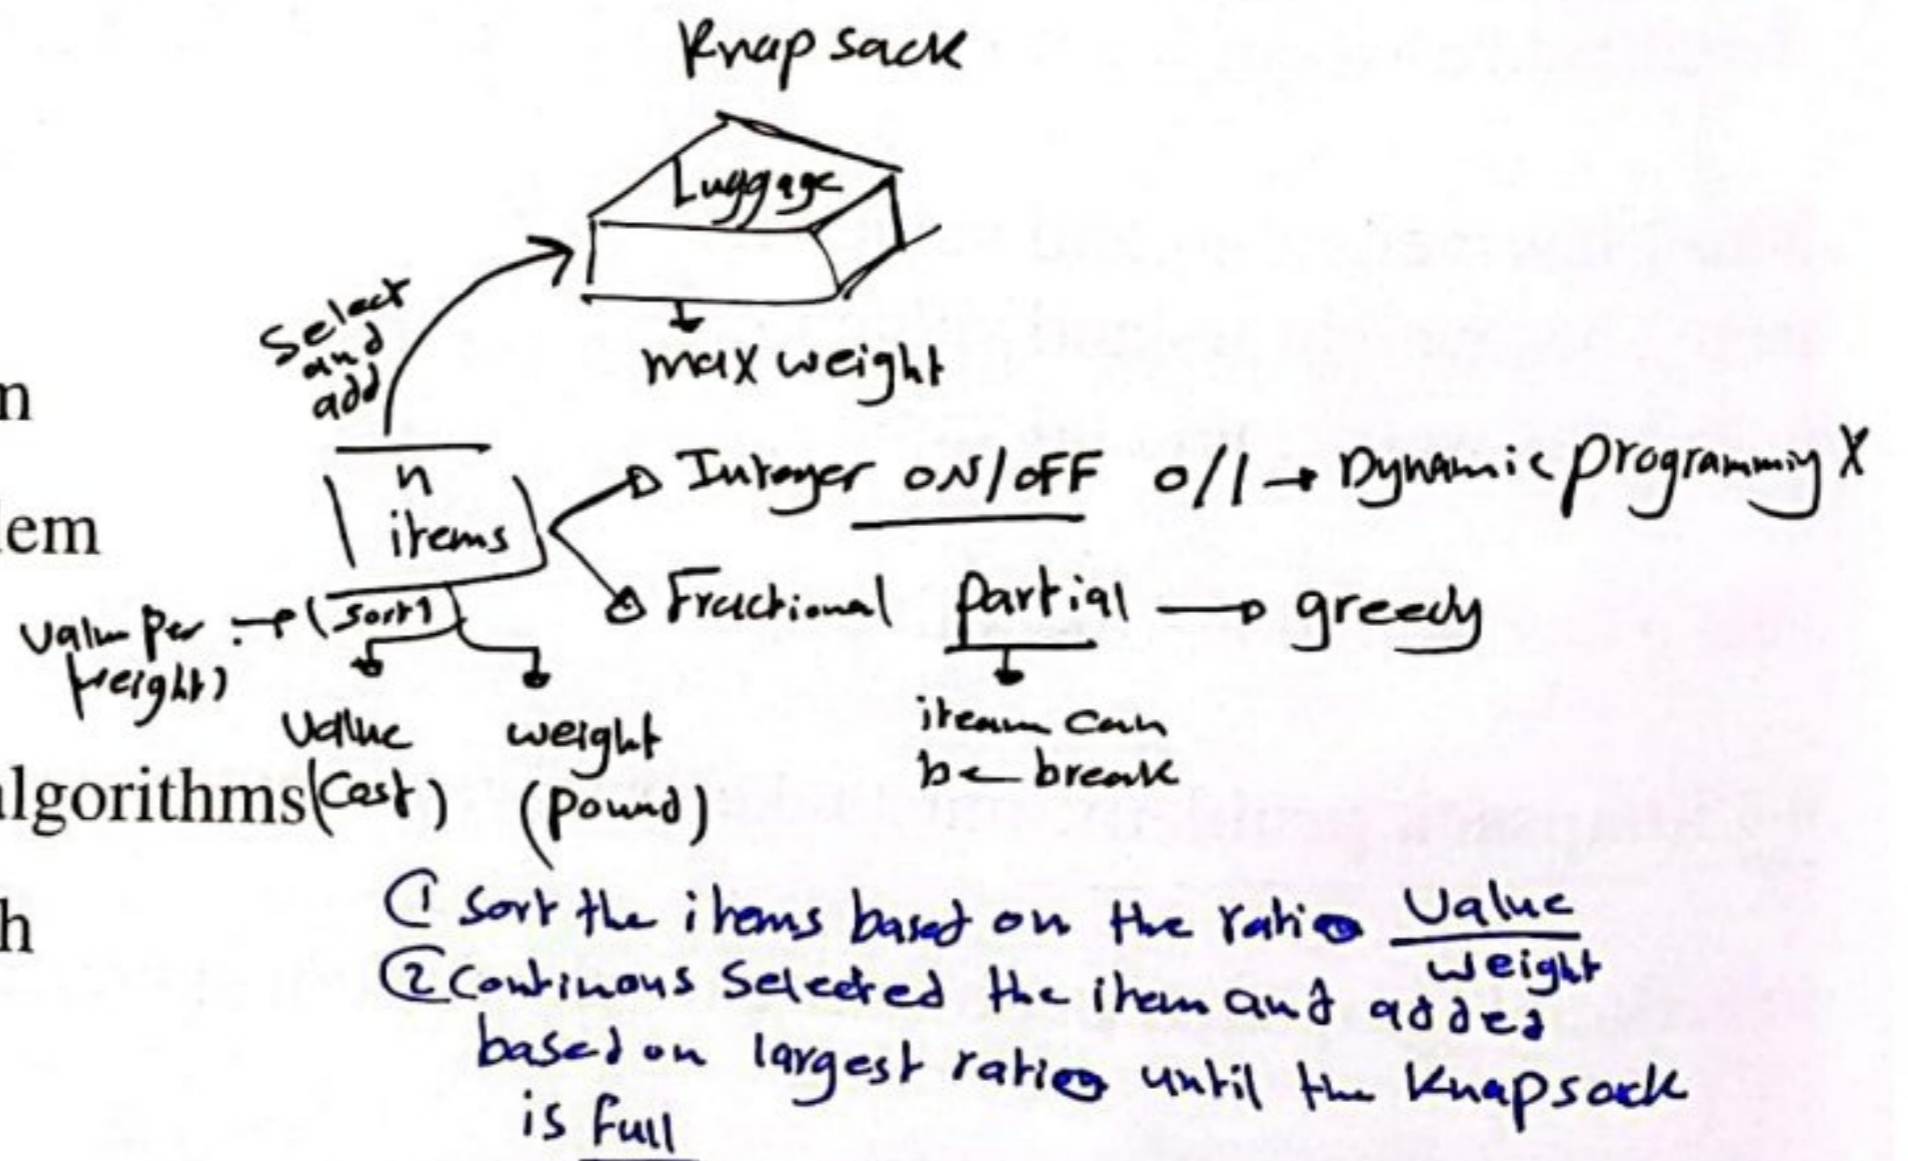 Knapsack
Luggage
Select
and
add
max weight
n
items
Integer ON/OFF 0/1 → Dynamic programming X
Fractional partial → greedy
item can
be break
value per
weight)
(sort)
Value weight
(cost) (pound)
n
lem
lgorithms
h
① Sort the items based on the ratio Value
weight
② Continous Selected the item and added
based on largest ratio until the Knapsack
is full